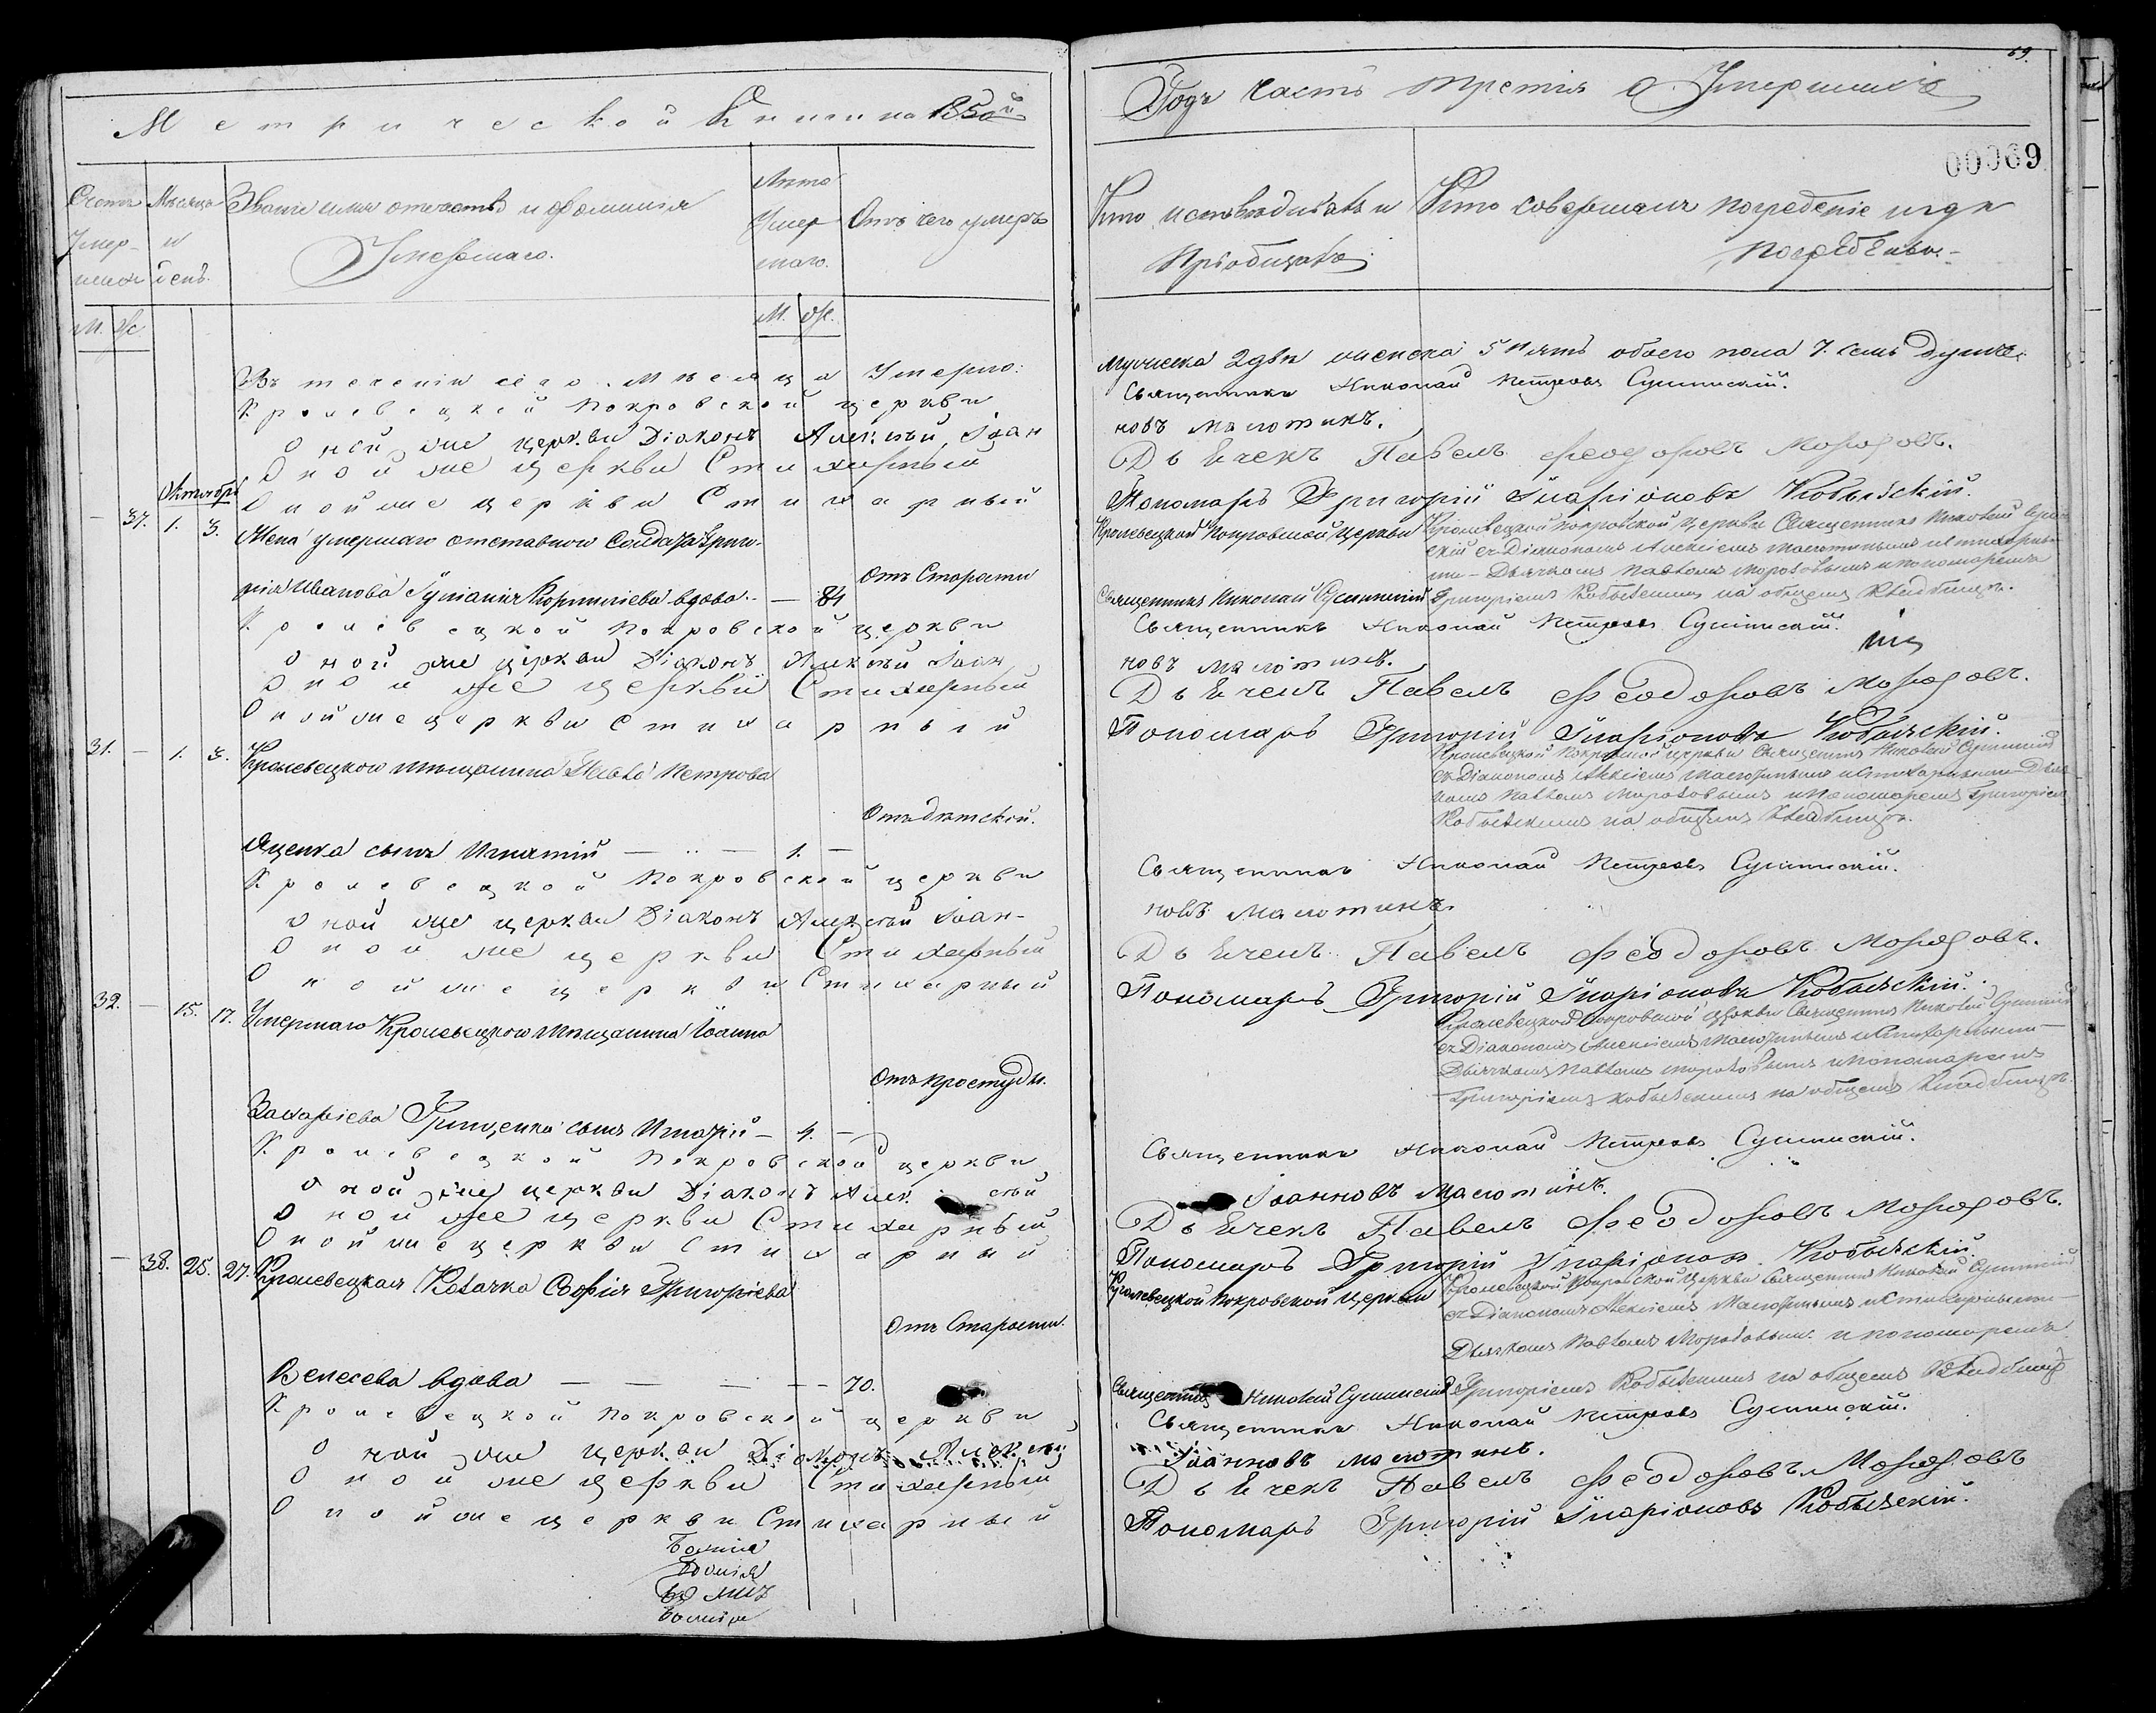 69.
Метрической Книги на 1850й
Годъ Часть третія О Умершихъ
00069
Счетъ Умер-шихъ
Мѣсяцъ и день.
Званіе имя отчество и фамилія Умершаго.
Лѣта Умер шаго.
Отъ чего умеръ
Кто исповѣдывалъ и Пріобщалъ
Кто совершалъ погребеніе и гдѣ погребены.
М. Ж.
М. Ж.
Въ теченіи сего мѣсяца Умерло: мужеска 2 два женска 5 пять обоего пола 7. семь душъ.
Кролевецкой Покровской церкви Священникъ Николай Петровъ Сушинскій.
Оной же церкви Діаконъ Алексѣй Іоанновъ Малютинъ.
Оной же церкви Стихарный Дьячекъ Павелъ Феодоровъ Морозовъ.
Оной же церкви Стихарный Пономарь Григорій Иларіоновъ Кобызскій.
Октябрь
— 37. 1. 3.
Жена умершаго отставного Солдата Григо-
рія Иванова Іуліанія Корниліева вдова — 84
Отъ Старости
Кролевецкой Покровской Церкви
Священникъ Николай Сушинскій
Кролевецкой Покровской Церкви Священникъ Николай Сушин
скій съ Діакономъ Алексіемъ Малютинымъ и Стихарны-
ми — Дьячкомъ Павломъ Морозовымъ и пономаремъ
Григоріемъ Кобызскимъ на общемъ Кладбищѣ.
Кролевецкой Покровской церкви Священникъ Николай Петровъ Сушинскій.
Оной же церкви Діаконъ Алексѣй Іоанновъ Малютинъ.
Оной же церкви Стихарный Дьячекъ Павелъ Феодоровъ Морозовъ.
Оной же церкви Стихарный Пономарь Григорій Иларіоновъ Кобызскій.
31. — 1. 3.
Кролевецкого мѣщанина Павла Петрова
Яценка сынъ Игнатій — 1. —
Отъ дѣтской.
Кролевецкой Покровской церкви Священникъ Николай Сушинскій
съ Діакономъ Алексіемъ Малютинымъ и Стихарными Дьяч
комъ Павломъ Морозовымъ и Пономаремъ Григоріемъ
Кобызскимъ на общемъ Кладбищѣ.
Кролевецкой Покровской церкви Священникъ Николай Петровъ Сушинскій.
Оной же церкви Діаконъ Алексѣй Іоан-новъ Малютинъ.
Оной же церкви Стихарный Дьячекъ Павелъ Феодоровъ Морозовъ.
Оной же церкви Стихарный Пономарь Григорій Иларіоновъ Кобызскій.
32. — 15. 17.
Умершаго Кролевецкого мѣщанина Іоанна
Захаріева Грищенка сынъ — 4. —
Отъ простуды.
Кролевецкой Покровской церкви Священникъ Николай Сушинскій
съ Діакономъ Алексіемъ Малютинымъ и Стихарными —
Дьячкомъ Павломъ Морозовымъ и Пономаремъ
Григоріемъ Кобызскимъ на общемъ Кладбищѣ.
Кролевецкой Покровской церкви Священникъ Николай Петровъ Сушинскій.
Оной же церкви Діаконъ Алексѣй Іоанновъ Малютинъ.
Оной же церкви Стихарный Дьячекъ Павелъ Феодоровъ Морозовъ.
Оной же церкви Стихарный Пономарь Григорій Иларіоновъ Кобызскій.
— 38. 25. 27.
Кролевецкая Козачка Софія Григоріева
вдова — 70.
Отъ Старости.
Кролевецкой Покровской Церкви
Священникъ Николай Сушинскій
Кролевецкой Покровской Церкви Священникъ Николай Сушинскій
съ Діакономъ Алексіемъ Малютинымъ и Стихарными —
Дьячкомъ Павломъ Морозовымъ и пономаремъ
Григоріемъ Кобызскимъ на общемъ Кладбищѣ
Кролевецкой Покровской церкви Священникъ Николай Петровъ Сушинскій.
Оной же церкви Діаконъ Алексѣй Іоанновъ Малютинъ.
Оной же церкви Стихарный Дьячекъ Павелъ Феодоровъ Морозовъ
Оной же церкви Стихарный Пономарь Григорій Иларіоновъ Кобызскій.